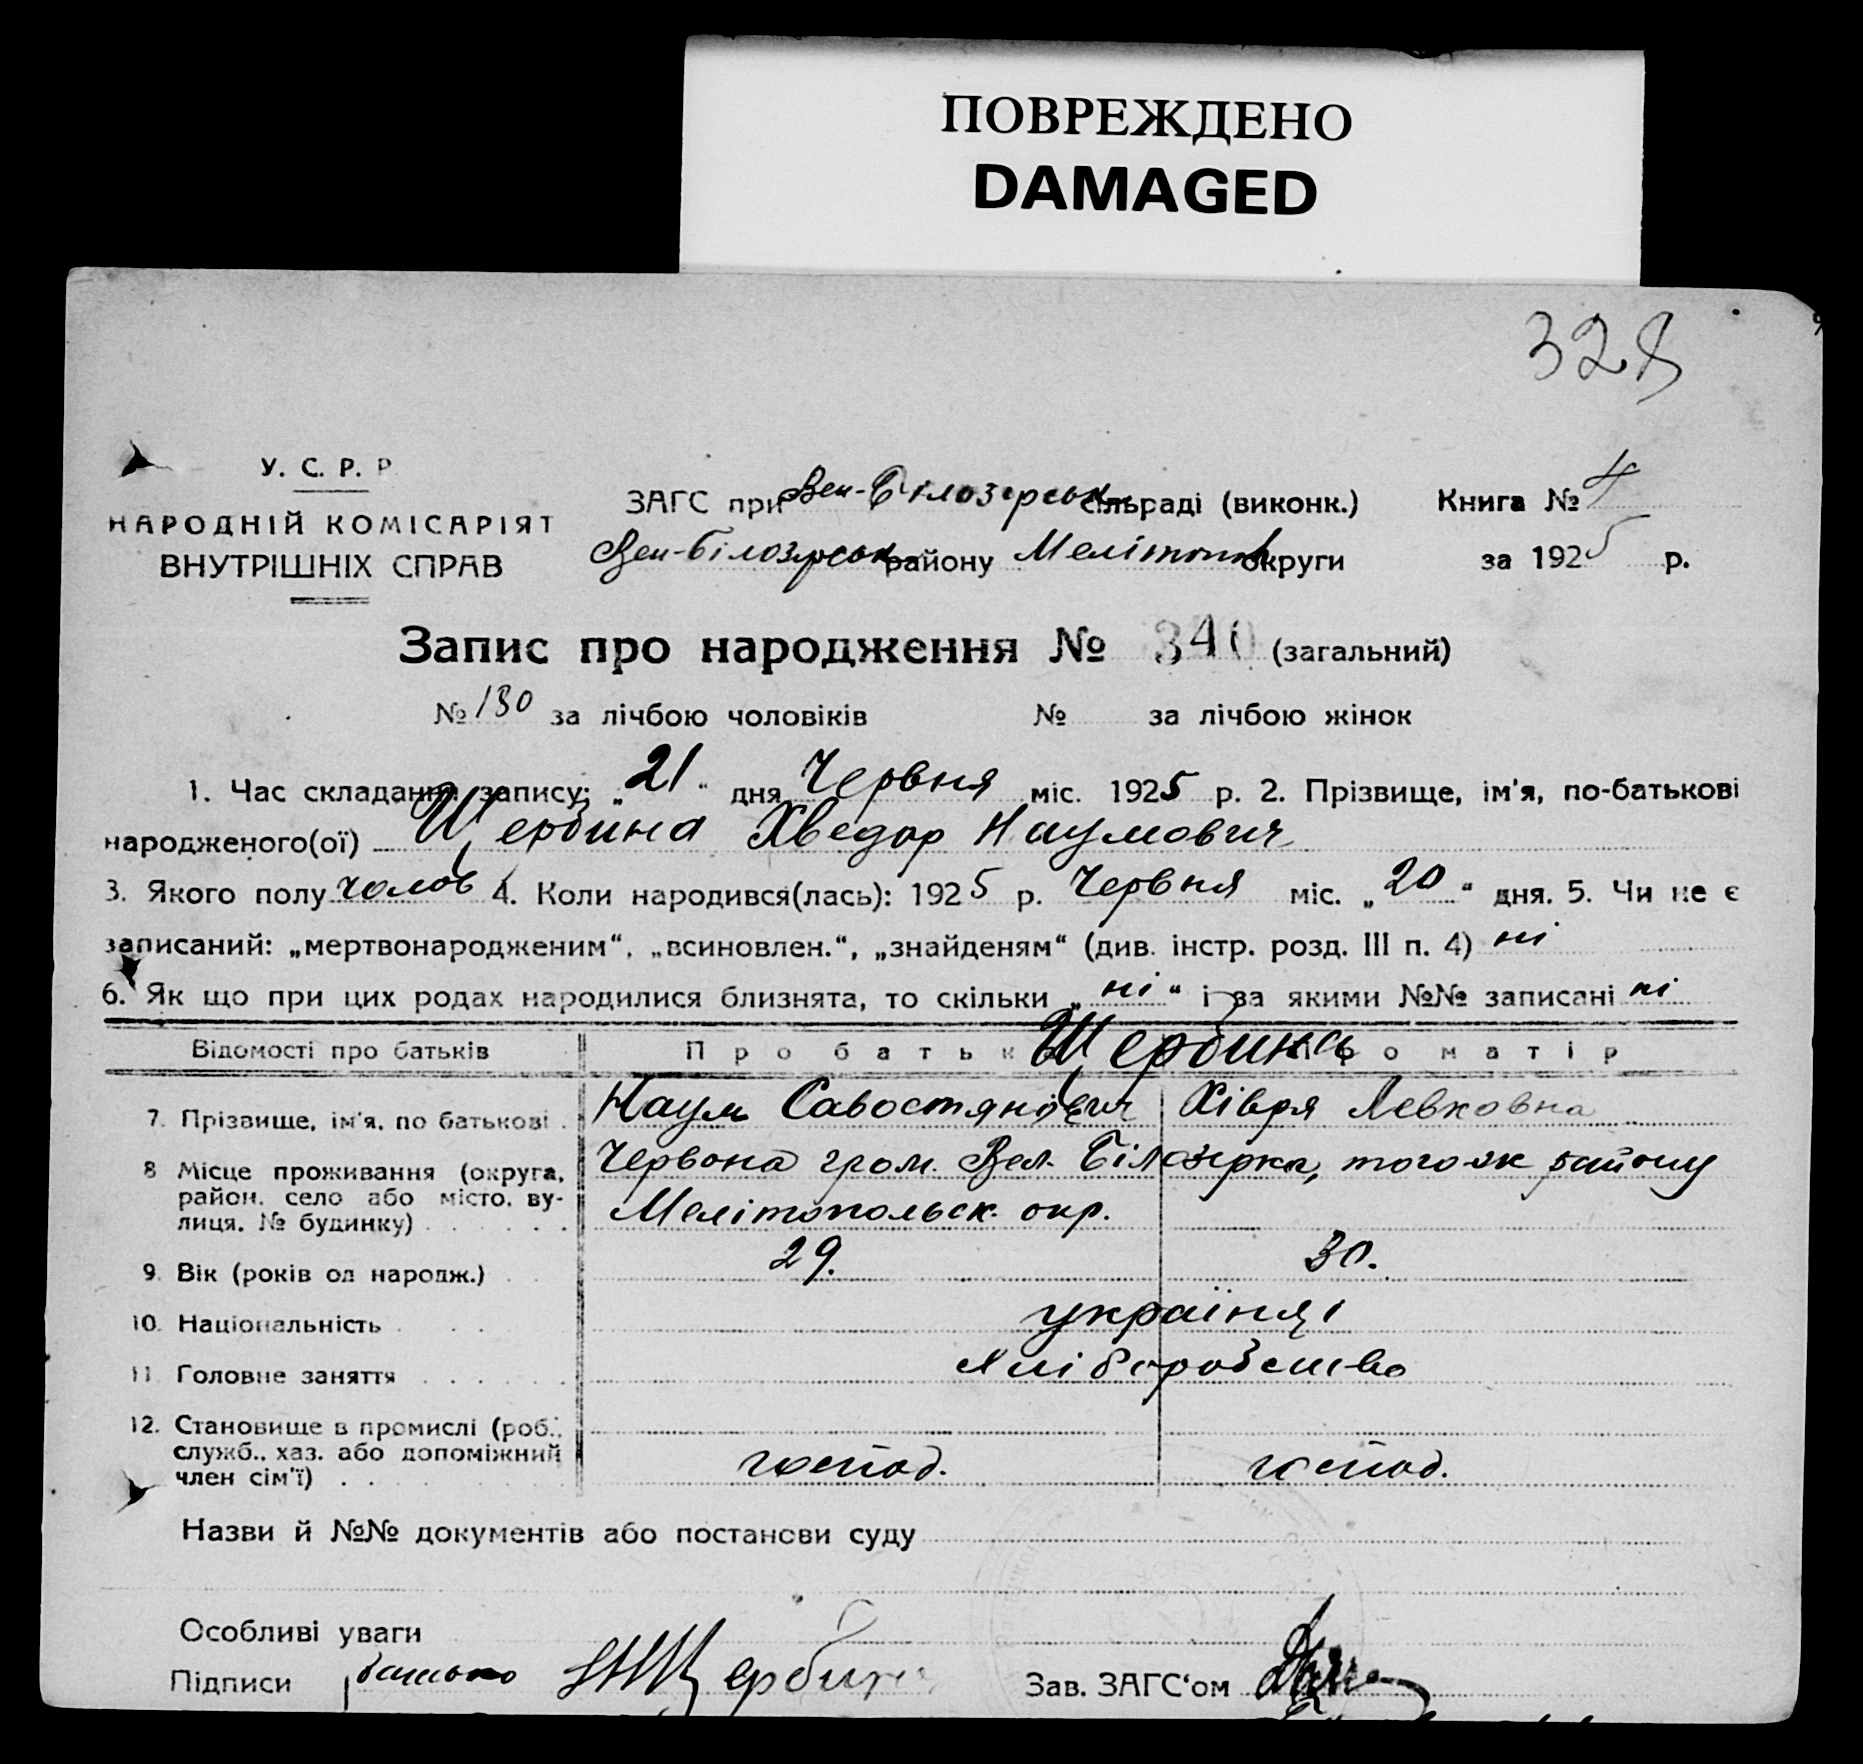 ПОВРЕЖДЕНО
DAMAGED
328
У. С. Р. Р.
НАРОДНІЙ КОМІСАРІЯТ
ВНУТРІШНІХ СПРАВ
ЗАГС при Вел-Білозерськ сільраді (виконк.) Книга № 4
Вел-Білозерськ району Мелітоп округи за 1925 р.
Запис про народження № 340 (загальний)
№ 130 за лічбою чоловіків № за лічбою жінок
1. Час складання запису: „21“ дня Червня міс. 1925 р. 2. Прізвище, ім'я, по-батькові
народженого(ої) Щербина Хведор Наумович
3. Якого полу чолов 4. Коли народився(лась): 1925 р. Червня міс. „20“ дня. 5. Чи не є
записаний: „мертвонародженим“, „всиновлен.“, „знайденям“ (див. інстр. розд. III п. 4) ні
6. Як що при цих родах народилися близнята, то скільки „ні“ і за якими №№ записані ні
Відомості про батьків Про батька Про матір
Щербина
7. Прізвище, ім'я, по батькові Наум Савостянович Хівря Левковна
8 Місце проживання (округа, район, село або місто, ву-лиця, № будинку) Червона гром. Вел. Білозірка, того-ж району
Мелітопольськ. окр.
9. Вік (років од народж.) 29. 30.
10. Національність українці
11 Головне заняття хліборобство
12. Становище в промислі (роб., служб., хаз. або допоміжний член сім'ї) господ. господ.
Назви й №№ документів або постанови суду
Особливі уваги
Підписи батько Щербина Зав. ЗАГС‘ом